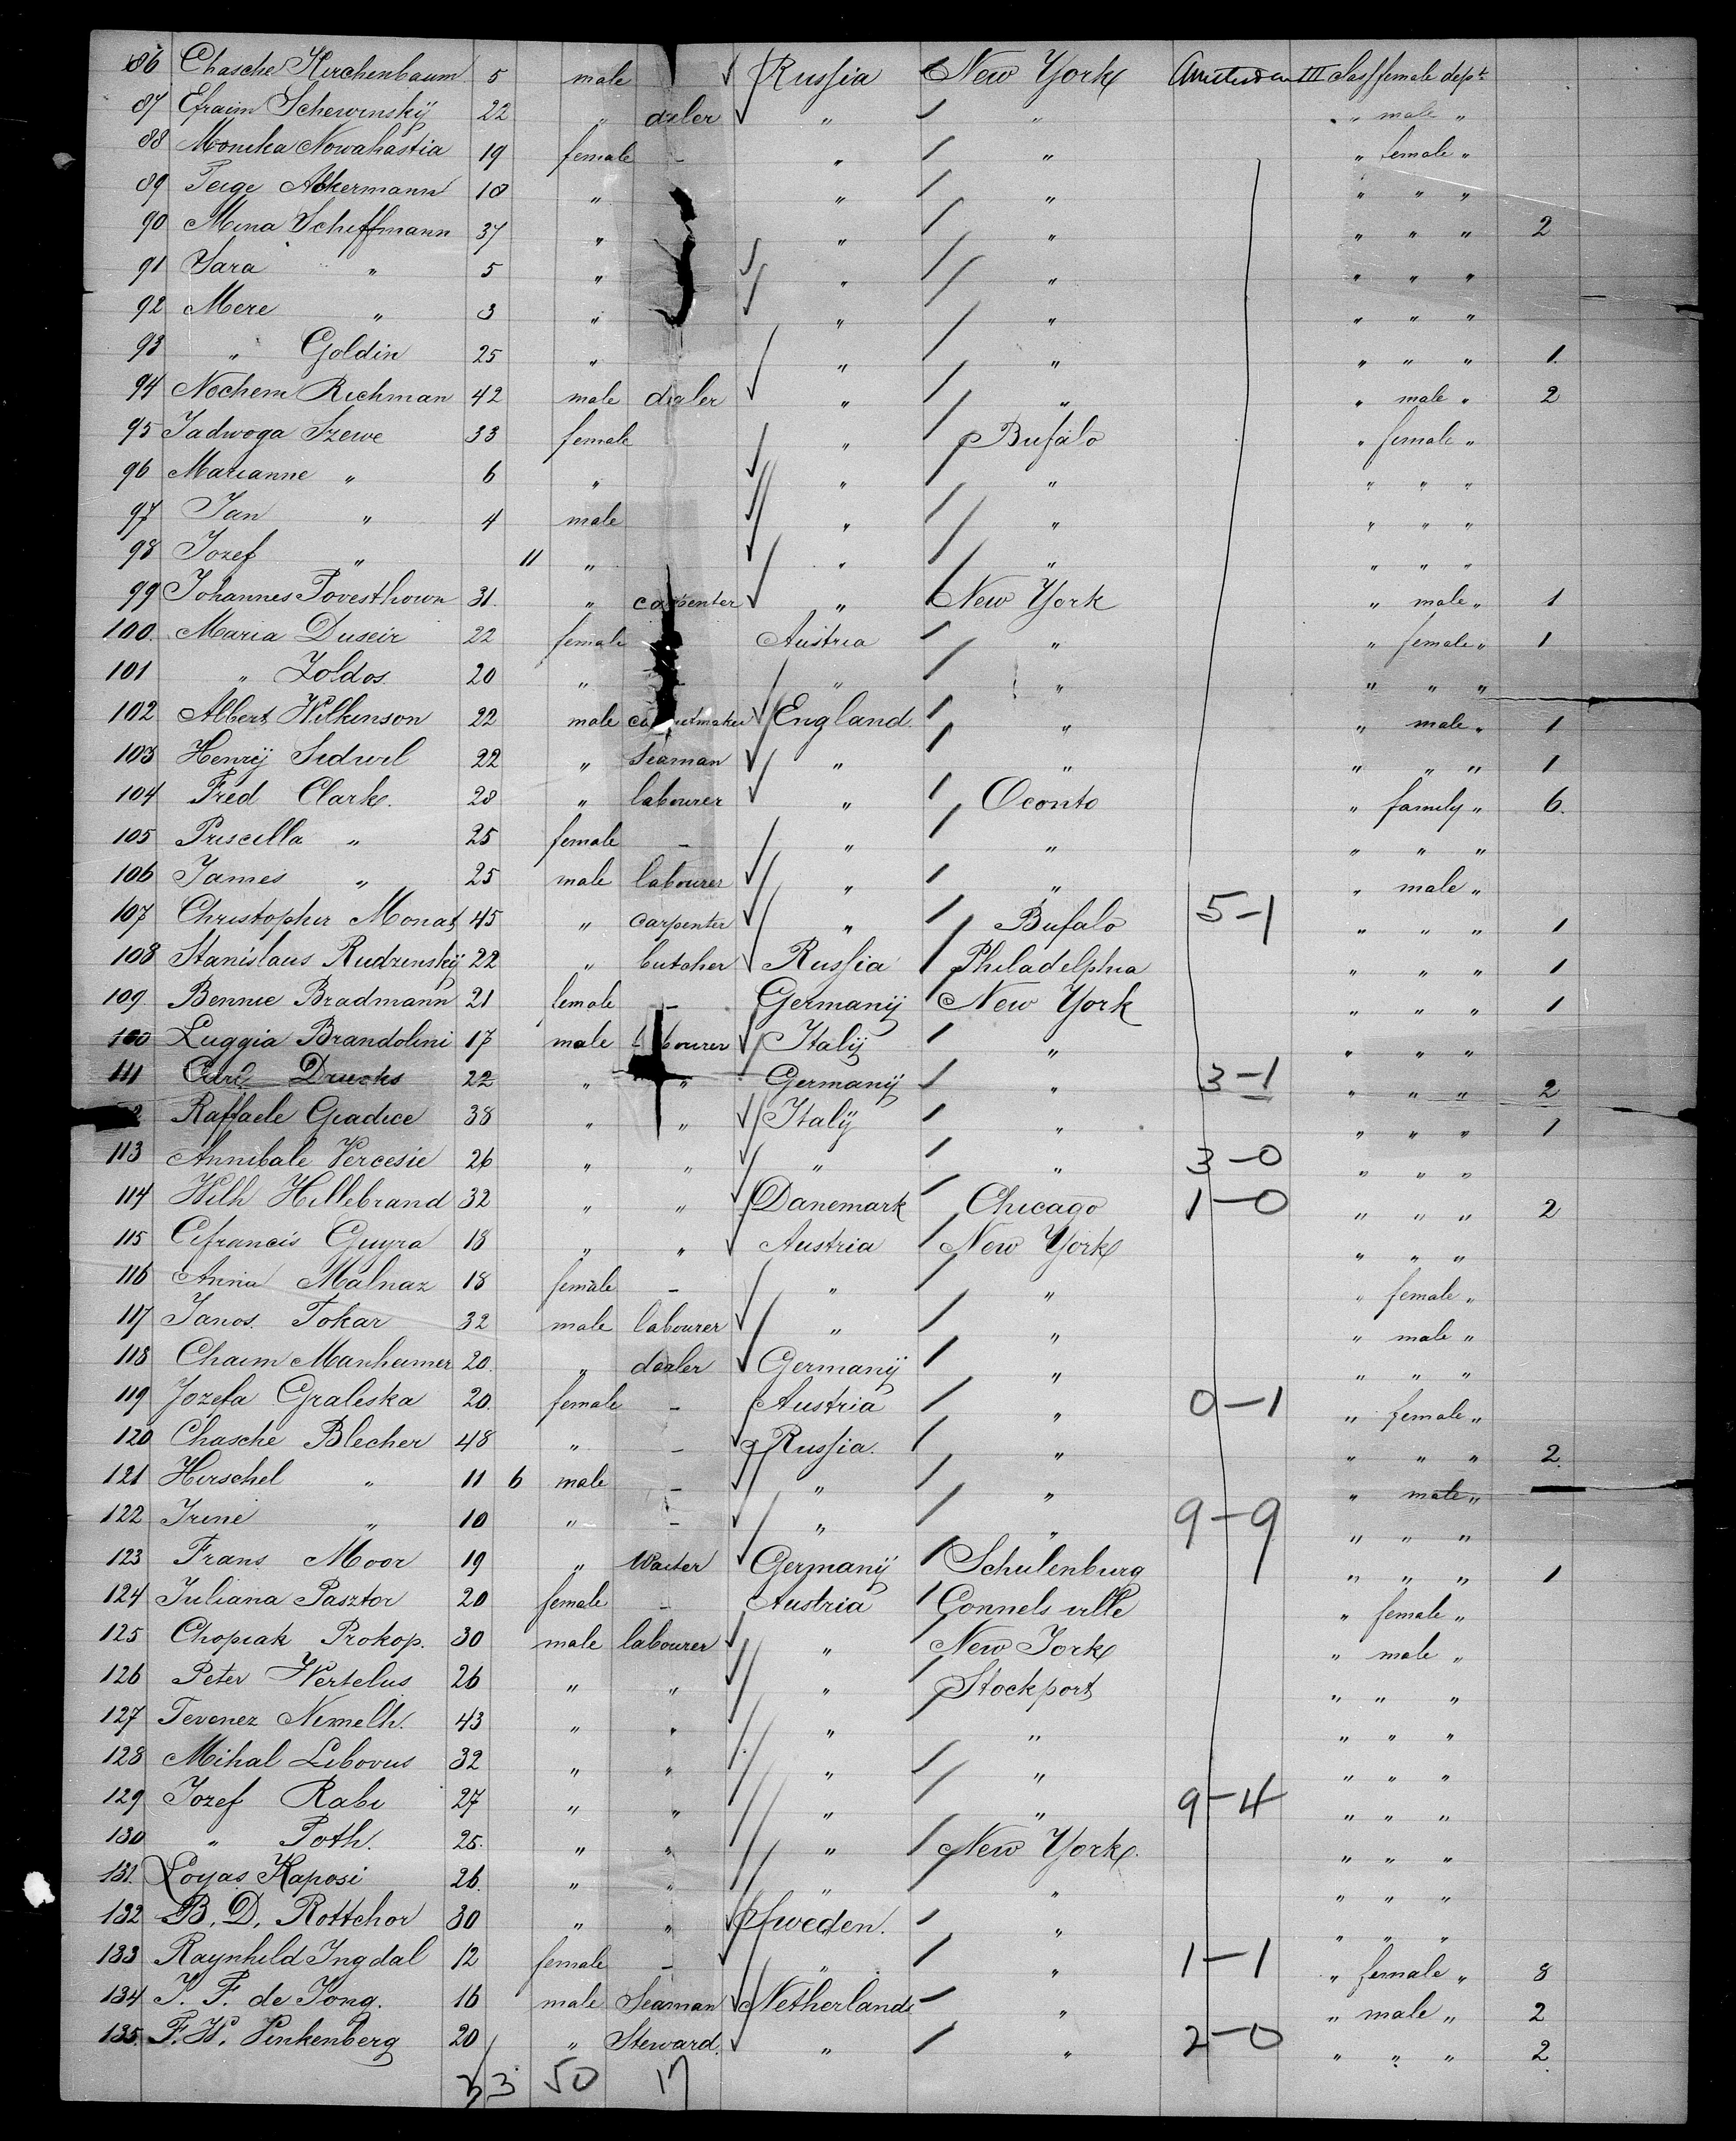 86 Chasche Kirchenbaum 5 male Russia New York Amsterdam III Pass female dept.
87 Efraim Schewinskÿ 22 " dealer " " " male "
88 Monika Nowahastia 19 female - " " " female "
89 Peige Akkermann 18 " " " " " "
90 Mina Schiffmann 37 " " " " " " 2
91 Sara " 5 " " " " " "
92 Mere " 3 " " " " " "
93 " Goldin 25 " " " " " " 1
94 Nochem Richman 42 male dealer " " " male " 2
95 Jadwoga Szewe 33 female " Bufalo " female "
96 Marianne " 6 " " " " " "
97 Jan " 4 male " " " " "
98 Jozef " 11 " " " " " "
99 Johannes Povesthown 31. " carpenter " New York " male " 1
100. Maria Duseir 22 female Austria " " female " 1
101 " Zoldos 20 " - " " " " "
102 Albert Wilkinson 22 male England " " male " 1
103 Henrÿ Sidwel 22 " Seaman " " " " " 1
104 Fred Clark. 28 " labourer " Oconto " family " 6.
105 Priscilla " 25 female - " " " " "
106 James " 25 male labourer " " " male "
107 Christopher Monat 45 " carpenter " Bufalo 5-1 " " " 1
108 Stanislaus Rudzinskÿ 22 " butcher Russia Philadelphia " " " 1
109. Bennie Bradmann 21 female - Germanÿ New York " " " 1
110 Luggia Brandolini 17 male labourer Italÿ " " " "
111 Carl Drucks 22 " " Germanÿ " 3-1 " " " 2
2 Raffaele Giadice 38 " " Italÿ " " " " 1
113 Annibale Vercesie 26 " " " " 3-0 " " "
114 Wilh Hillebrand 32 " " Danemark Chicago 1-0 " " " 2
115 Cifrancis Guyra 18 " " Austria New York " " "
116 Anna Malnaz 18 female - " " " female "
117 Janos. Tokar 32 male labourer " " " male "
118 Chaim Manheimer 20. " dealer Germanÿ " " " "
119 Jozefa Graleska 20. female - Austria " 0-1 " female "
120 Chasche Blecher 48 " - Russia. " " " " 2.
121 Hirschel " 11 6 male - " " " male "
122 Irene " 10 " - " " 9-9 " " "
123 Frans Moor 19 " Waiter Germanÿ Schulenburg " " " 1
124 Juliana Pasztor 20 female - Austria Connels ville " female "
125 Chopiak Prokop. 30 male labourer " New York " male "
126 Peter Wertelus 26 " " " Stockport " " "
127 Tevenez Nemelh. 43 " " " " " " "
128 Mihal Libovus 32 " " " " " " "
129 Jozef Rabi 27 " " " " 9-4 " " "
130 " Poth. 25. " " " New York. " " "
131. Loyas Kaposi 26. " " " " " " "
132 B. D. Rottchor 30 " " Sweden. " " " "
133 Raynhild Ingdal 12 female - " " 1-1 " female " 8
134 J. F. de Jong. 16 male Seaman Netherlands " " male " 2
135. F. W. Pinkenberg 20 " Steward. " " 2-0 " " " 2.
33 50 17